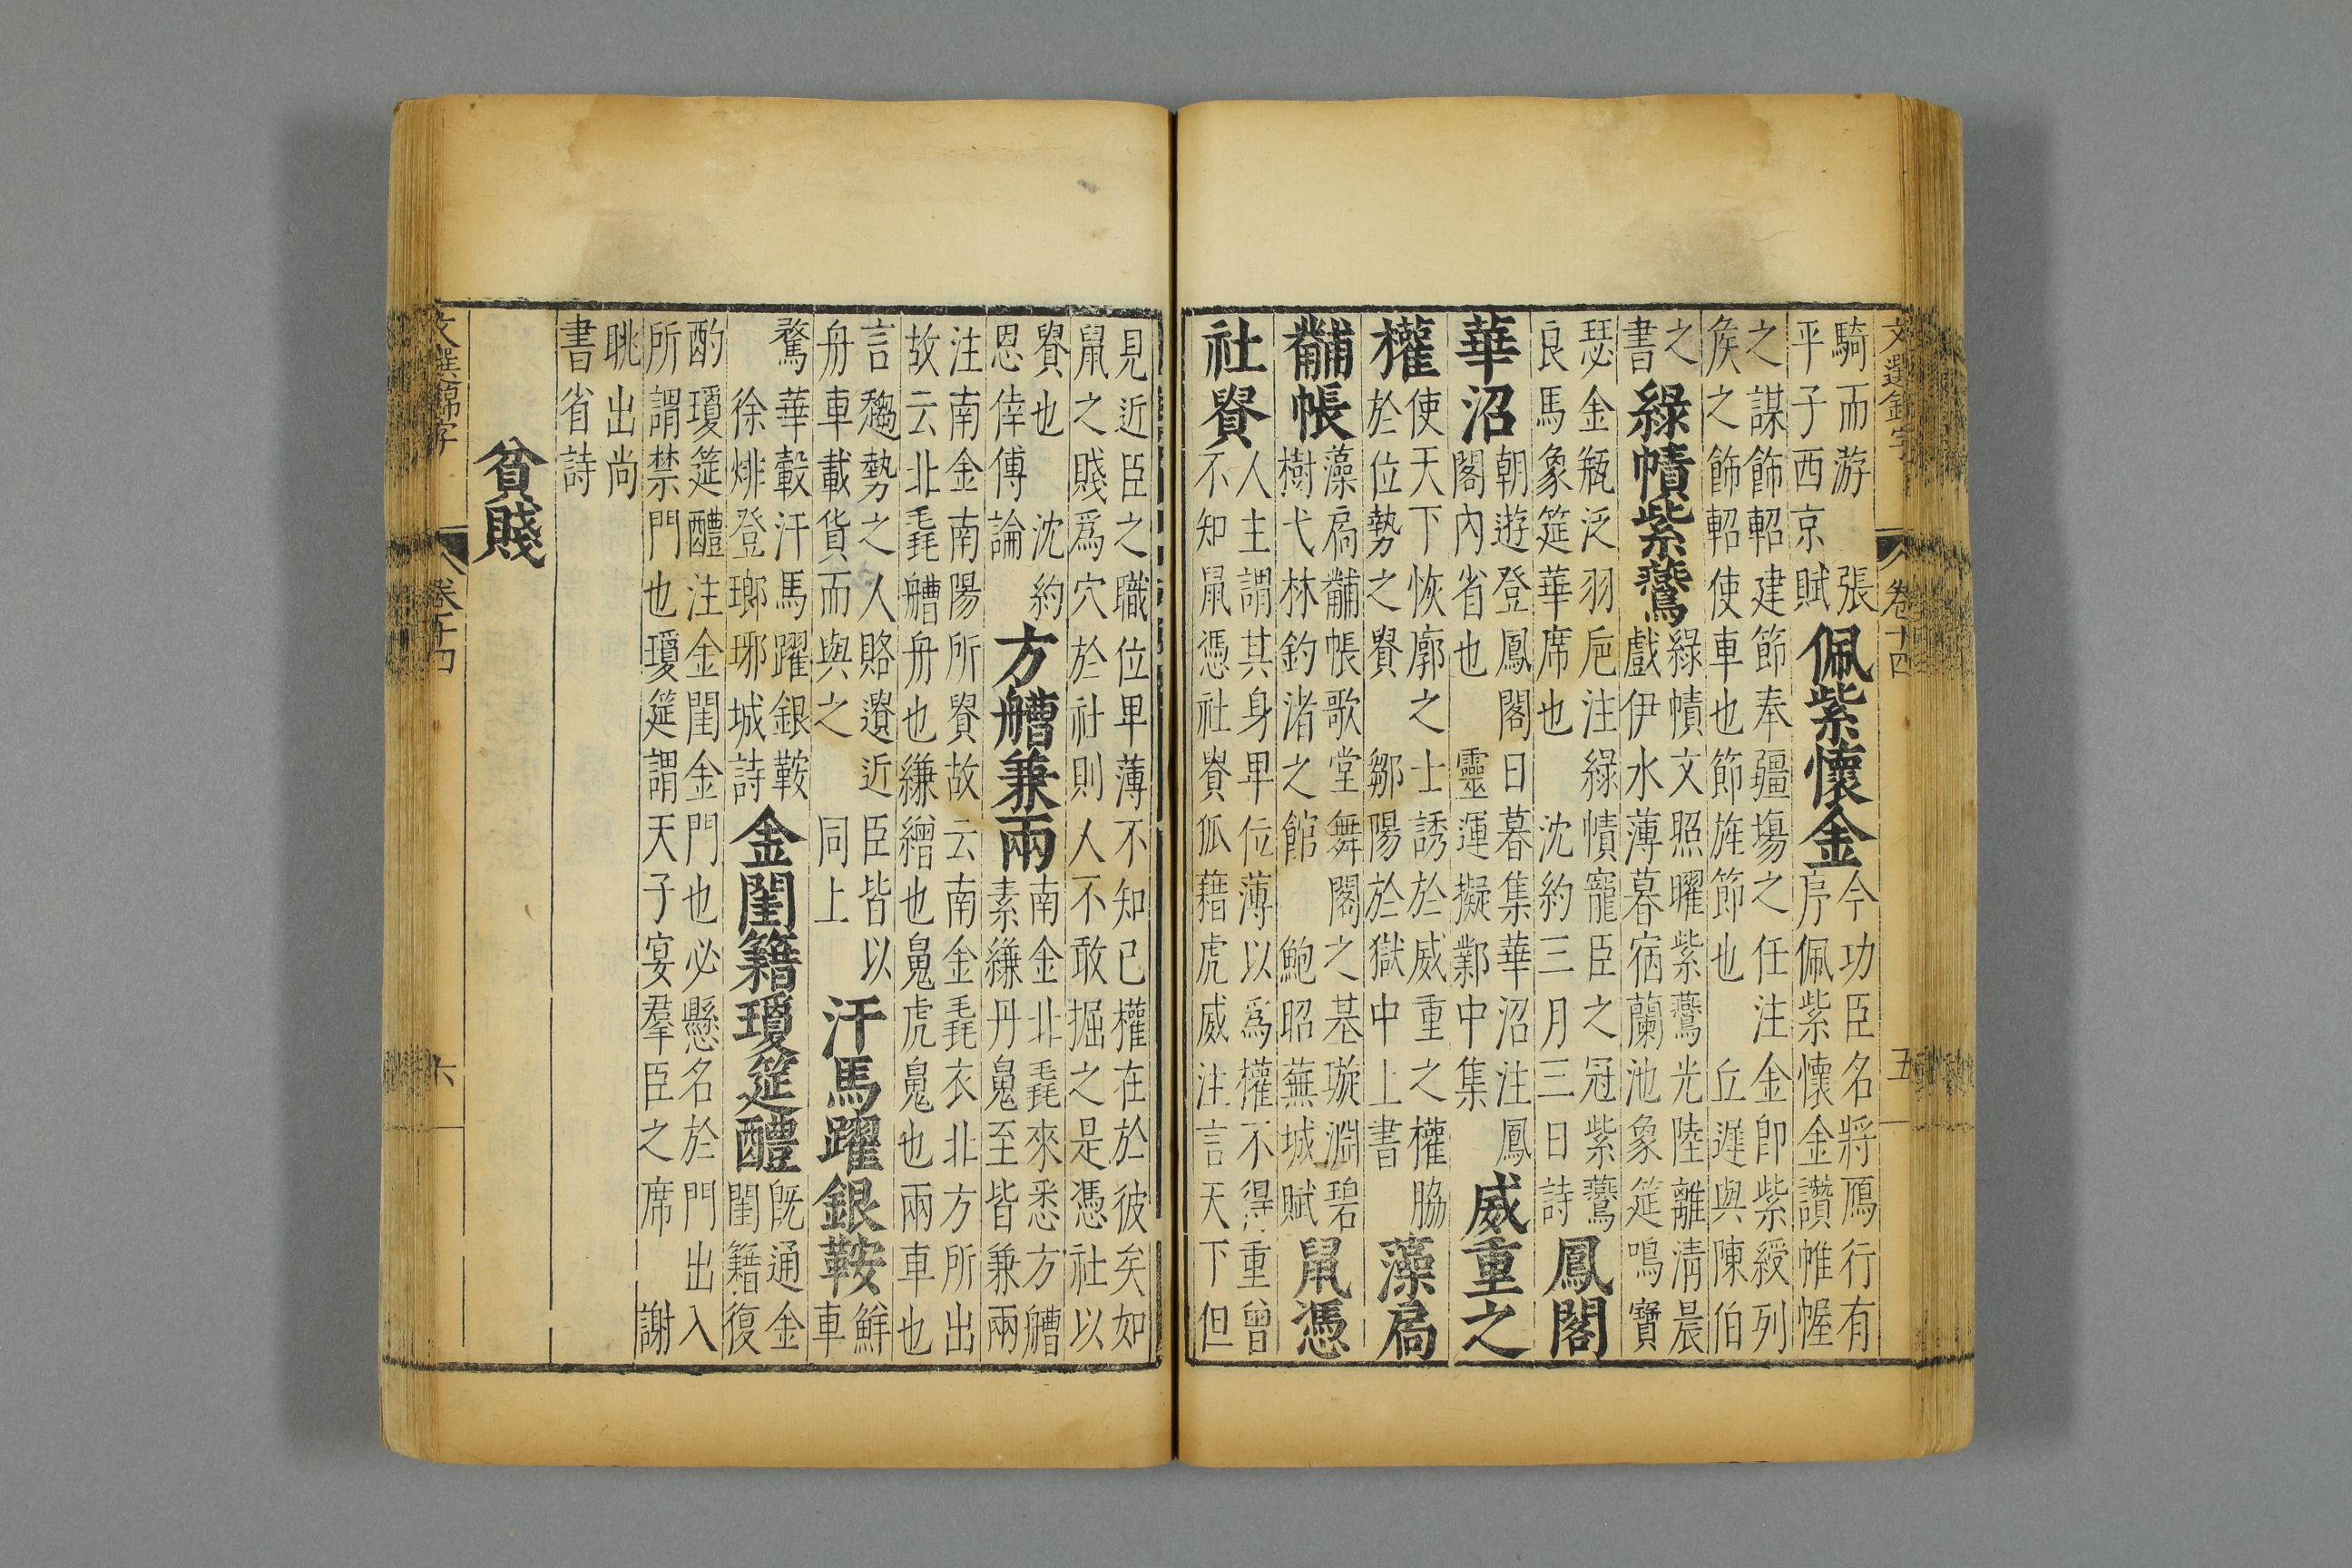 文選錦字 卷十四 五
騎而游 張
平子西京賦
佩紫懷金
今功臣名將鴈行有
序佩紫懷金讚帷幄
之謀飾軺建節奉疆埸之任注金卽紫綬列
矦之飾軺使車也節旄節也 丘遲與陳伯
之
書
綠幘紫鷰
綠幘文照曜紫鷰光陸離淸晨
戲伊水薄暮宿蘭池象筵鳴寶
瑟金瓶泛羽卮注綠幘寵臣之冠紫鷰
良馬象筵華席也 沈約三月三日詩
鳳閣
華沼
朝遊登鳳閣日暮集華沼注鳳
閣內省也 靈運擬鄴中集
威重之
權
使天下恢廓之士誘於威重之權脇
於位勢之貴 鄒陽於獄中上書
藻扃
黼帳
藻扃黼帳歌堂舞閣之基璇淵碧
樹弋林釣渚之館 鮑昭蕪城賦
鼠憑
社貴
人主謂其身卑位薄以爲權不得重曾
不知鼠憑社貴狐藉虎威注言天下但
見近臣之職位卑薄不知已權在於彼矣如
鼠之賤爲穴於社則人不敢掘之是憑社以
貴也 沈約
恩倖傅論
方艚兼兩
南金北毳來悉方艚
素縑丹魄至皆兼兩
注南金南陽所貴故云南金毳衣北方所出
故云北毳艚舟也縑繒也魄虎魄也兩車也
言趨勢之人賂遺近臣皆以
舟車載貨而與之 同上
汗馬躍銀鞍
鮮
車
騖華轂汗馬躍銀鞍
徐悱登瑯琊城詩
金閨籍瓊筵醴
旣通金
閨籍復
酌瓊筵醴注金閨金門也必懸名於門出入
所謂禁門也瓊筵謂天子宴羣臣之席 謝
眺出尚
書省詩
貧賤
文選錦字 卷十四 六